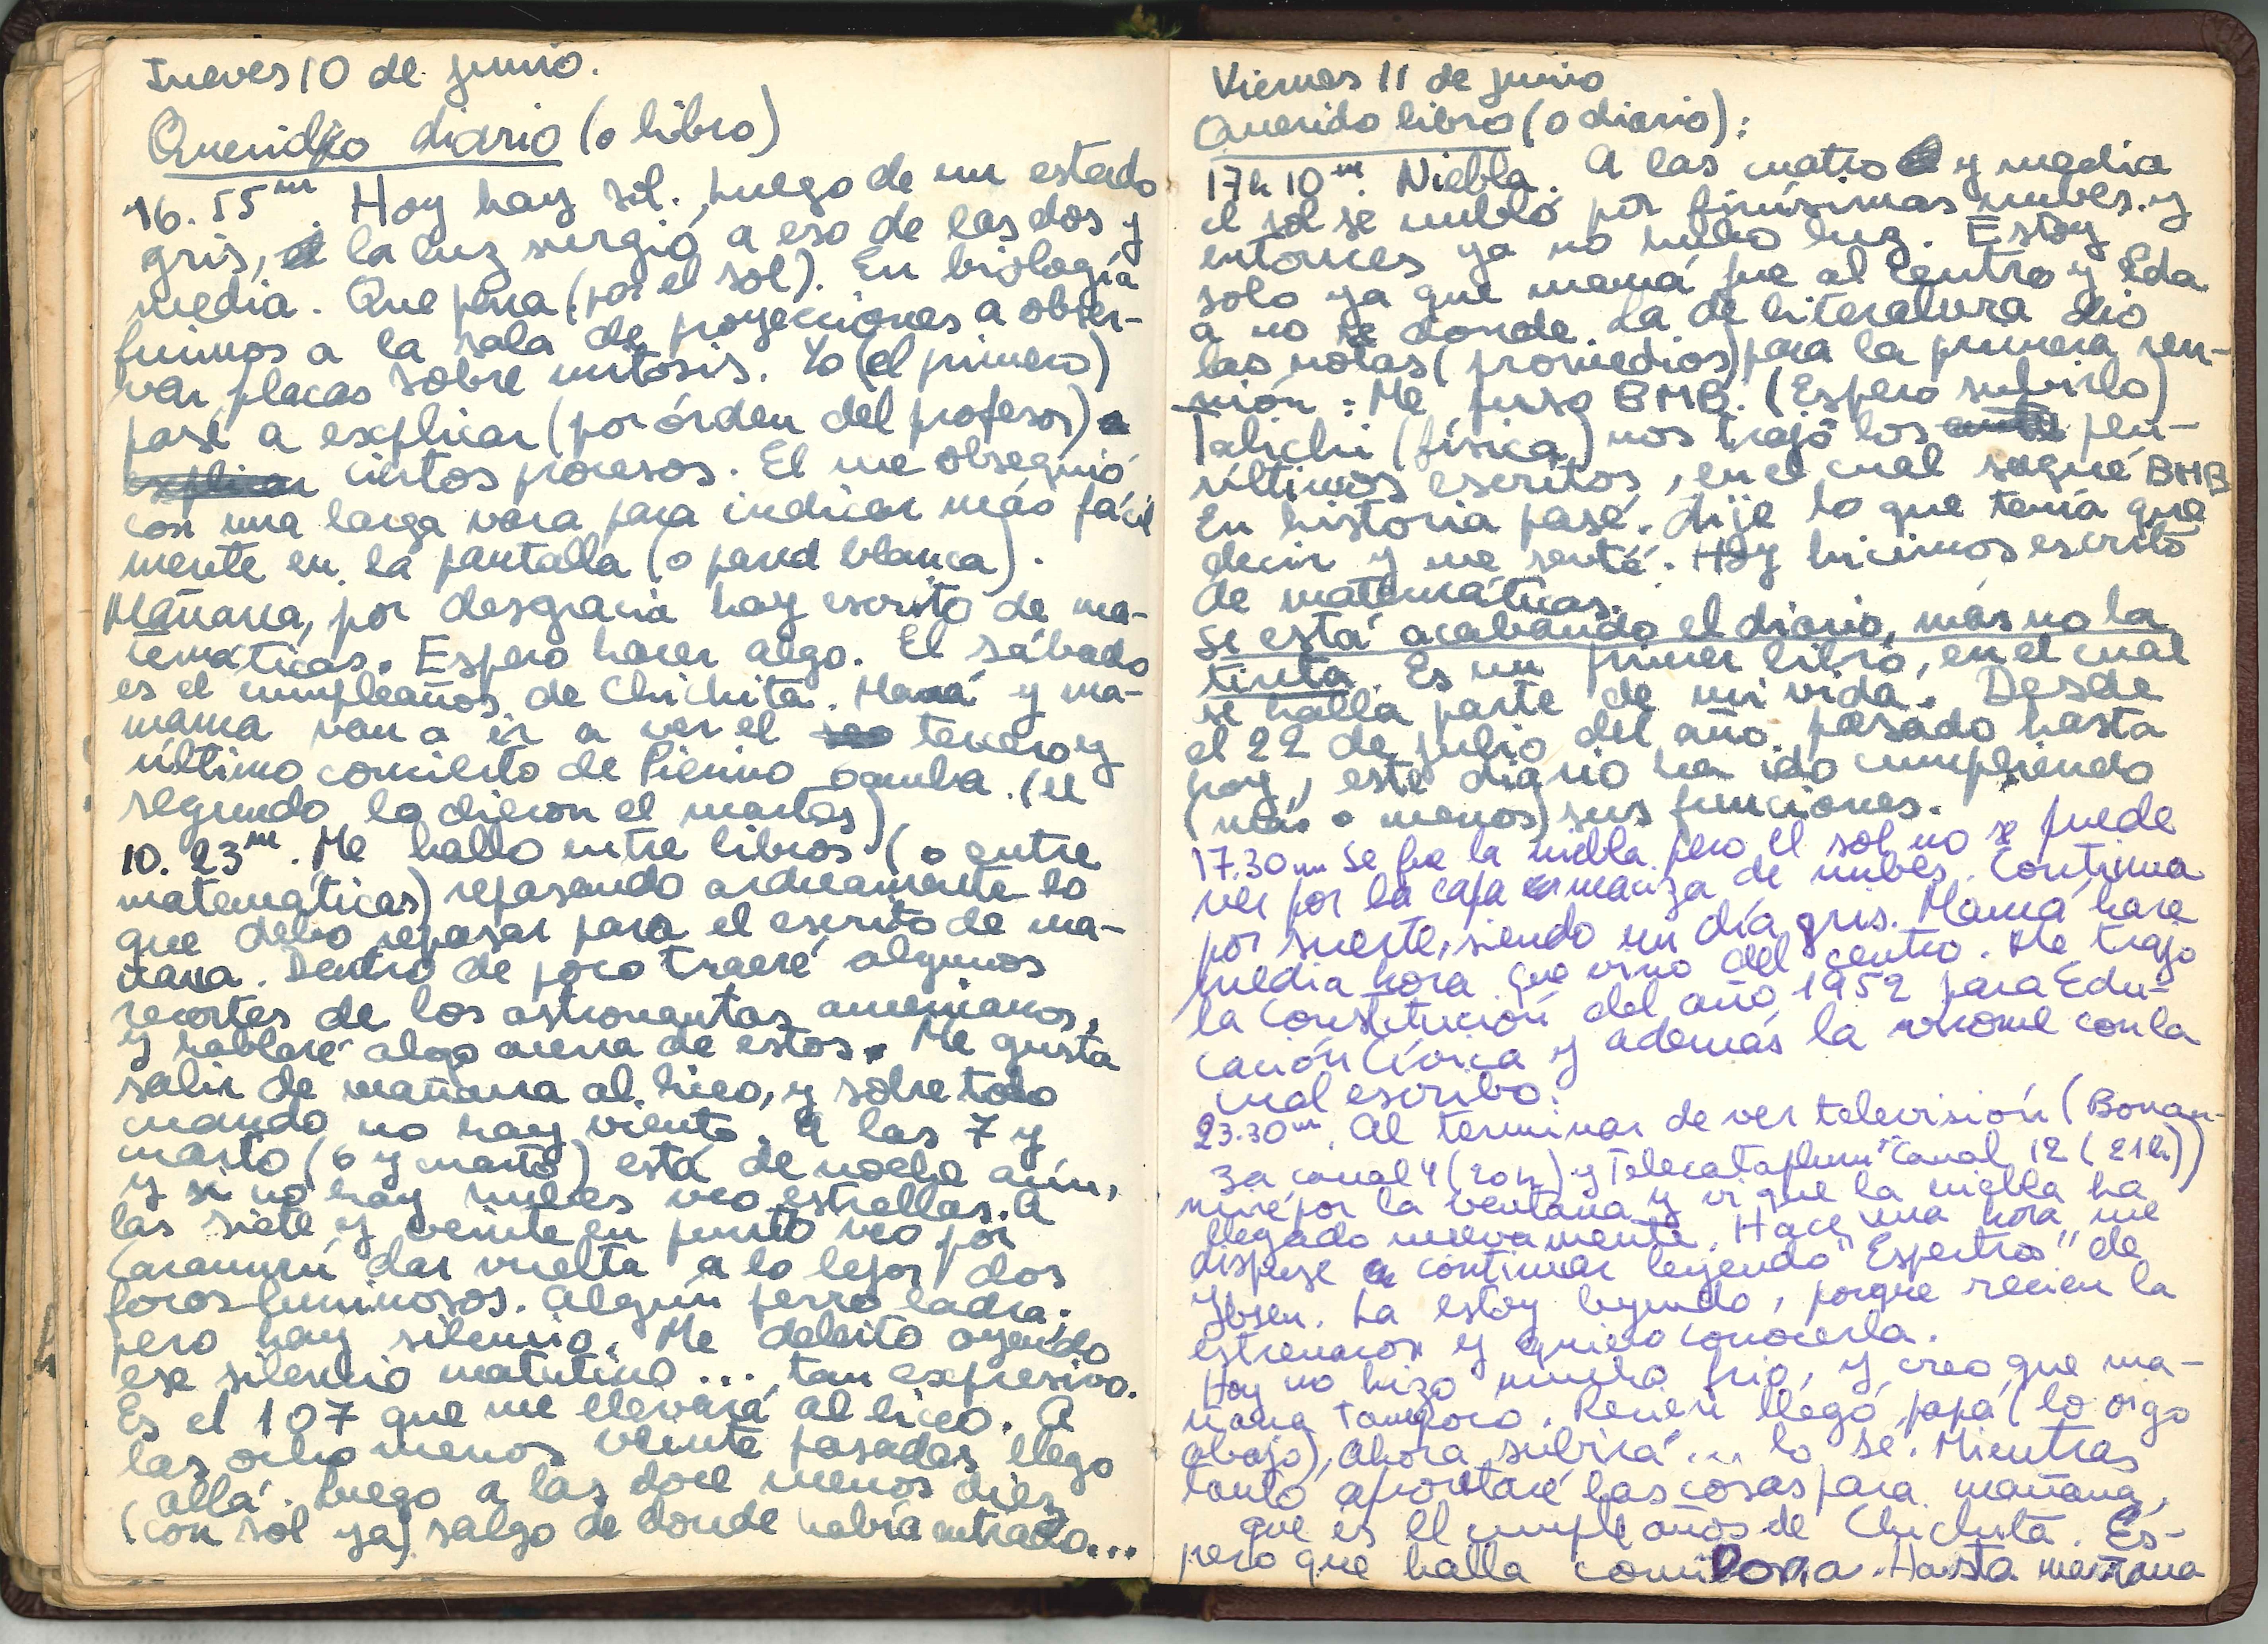 Jueves 10 de junio.
Querido diario (o libro)
16. 55m. Hoy hay sol., luego de un estado
gris, la luz surgió a eso de las dos y
media. Que pena (por el sol). En biología
fuimos a la sala de proyecciones a obser-
var placas sobre mitosis. Yo (el primero)
pasé a explicar (por órden del profesor)
ciertos procesos. El me obsequió
con una larga vara para indicar más fácil
mente en la pantalla (o pared blanca).
Mañana, por desgracia hay escrito de ma-
temáticas. Espero hacer algo. El sábado
es el cumpleaños de Chichita. Mamá y ma-
mama van a ir a ver el tercero y
último concierto de Pierino Gamba. (el
segundo lo dieron el martes)
10. 23m. Me hallo entre libros (o entre
matemáticas) repasando arduamente lo
que debo repasar para el escrito de ma-
ñana. Dentro de poco traeré algunos
recortes de los astronautas americanos,
y hablaré algo acerca de estos. Me gusta
salir de mañana al liceo, y sobre todo
cuando no hay viento. A las 7 y
cuarto (6 y cuarto) está de noche aún,
y si no hay nubes veo estrellas. A
las siete y veinte en punto veo por
Caramurú dar vuelta a lo lejos dos
focos luminosos. Algún perro ladra;
pero hay silencio. Me deleito oyendo
ese silencio matutino... tan expresivo.
Es el 107 que me llevará al liceo. A
las ocho menos veinte pasadas llego
allá. Luego a las doce menos diez
(con sol ya) salgo de donde había entrado...
Viernes 11 de junio
Querido libro (o diario):
17h 10m. Niebla. A las cuatro y media
el sol se nubló por finísimas nubes. y
entonces ya no hubo luz. Estoy
solo ya que mamá fue al centro y Eda
a no se donde. La de literatura dio
las notas (promedios) para la primera reu-
nión: Me puso BMB. (Espero subirlo)
Talichi (física) nos trajo los pen-
últimos escritos, en el cual saqué BMB
En historia pasé. Dije lo que tenía que
decir y me senté. Hoy hicimos escrito
de matemáticas.
Se está acabando el diario, más no la
tinta. Es un primer libro, en el cual
se halla parte de mi vida. Desde
el 22 de julio del año pasado hasta
hoy, este diario ha ido cumpliendo
(más o menos) sus funciones.
17.30m Se fue la niebla pero el sol no se puede
ver por la capa maciza de nubes. Continua
por suerte, siendo un día gris. Mamá hace
media hora que vino del centro. Me trajo
la Constitución del año 1952 para Edu-
cación Cívica y además la con la
cual escribo.
23.30m. Al terminar de ver televisión (Bonan-
za canal 4 (20h) y Telecataplum "Canal 12 (21h))
miré por la ventana y vi que la niebla ha
llegado nuevamente. Hace una hora me
dispuse a continuar leyendo "Espectros" de
Ibsen. La estoy leyendo, porque recien la
estrenaron y quiero conocerla.
Hoy no hizo mucho frio, y creo que ma-
ñana tampoco. Recien llegó papá (lo oigo
abajo), ahora subirá... lo sé. Mientras
tanto aprontaré las cosas para mañana,
que es el cumpleaños de Chichita. Es-
pero que halla comilona. Hasta mañana